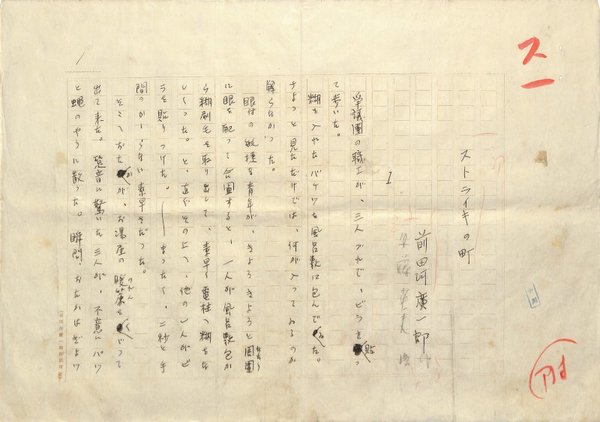 スト
ストライキの町
前田河廣一郎 作
1
争議團の職工が、三人づれで、ビラを貼つ
て歩いた。
糊を入れたバケツを風呂敷に包んでゐた。
ちよつと見ただけでは、何が入つてゐるのか
解らなかつた。
眼付の敏捷な青年が、きよろきよろと周圍
に眼を配つて合圖すると、一人が風呂敷包か
ら糊刷毛を取り出して、素早く電柱へ糊をな
しくつた。と、直ぐその上へ、他の一人がビ
ラを貼りつけた。――まつたく、二秒と手
間のかゝらない素早さだつた。
そこへおたかが、お湯屋の暖簾をくゞつて
のれん
出て来た。跫音に驚いた三人が、不意にパツ
と蠅のやうに散つた。瞬間、おたかはぎよツ